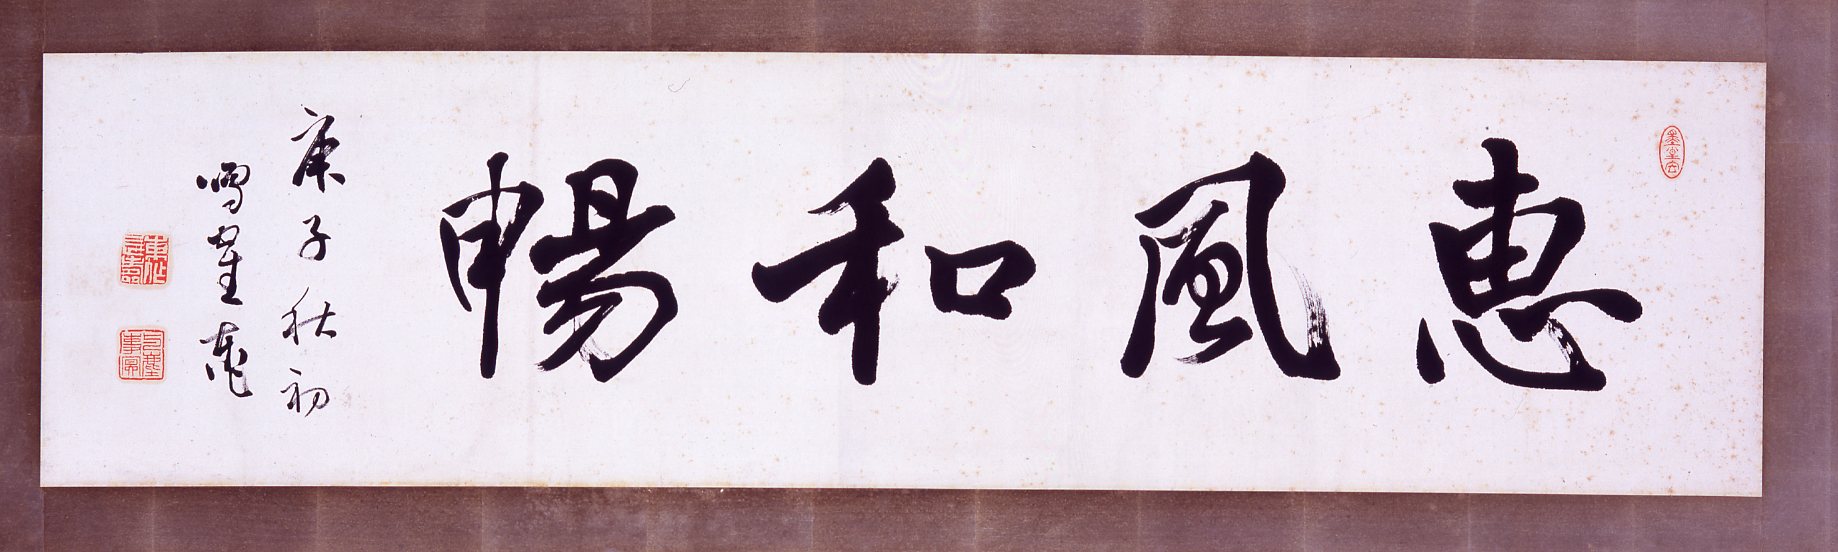 恵風和暢
庚子秋初
鳴鶴